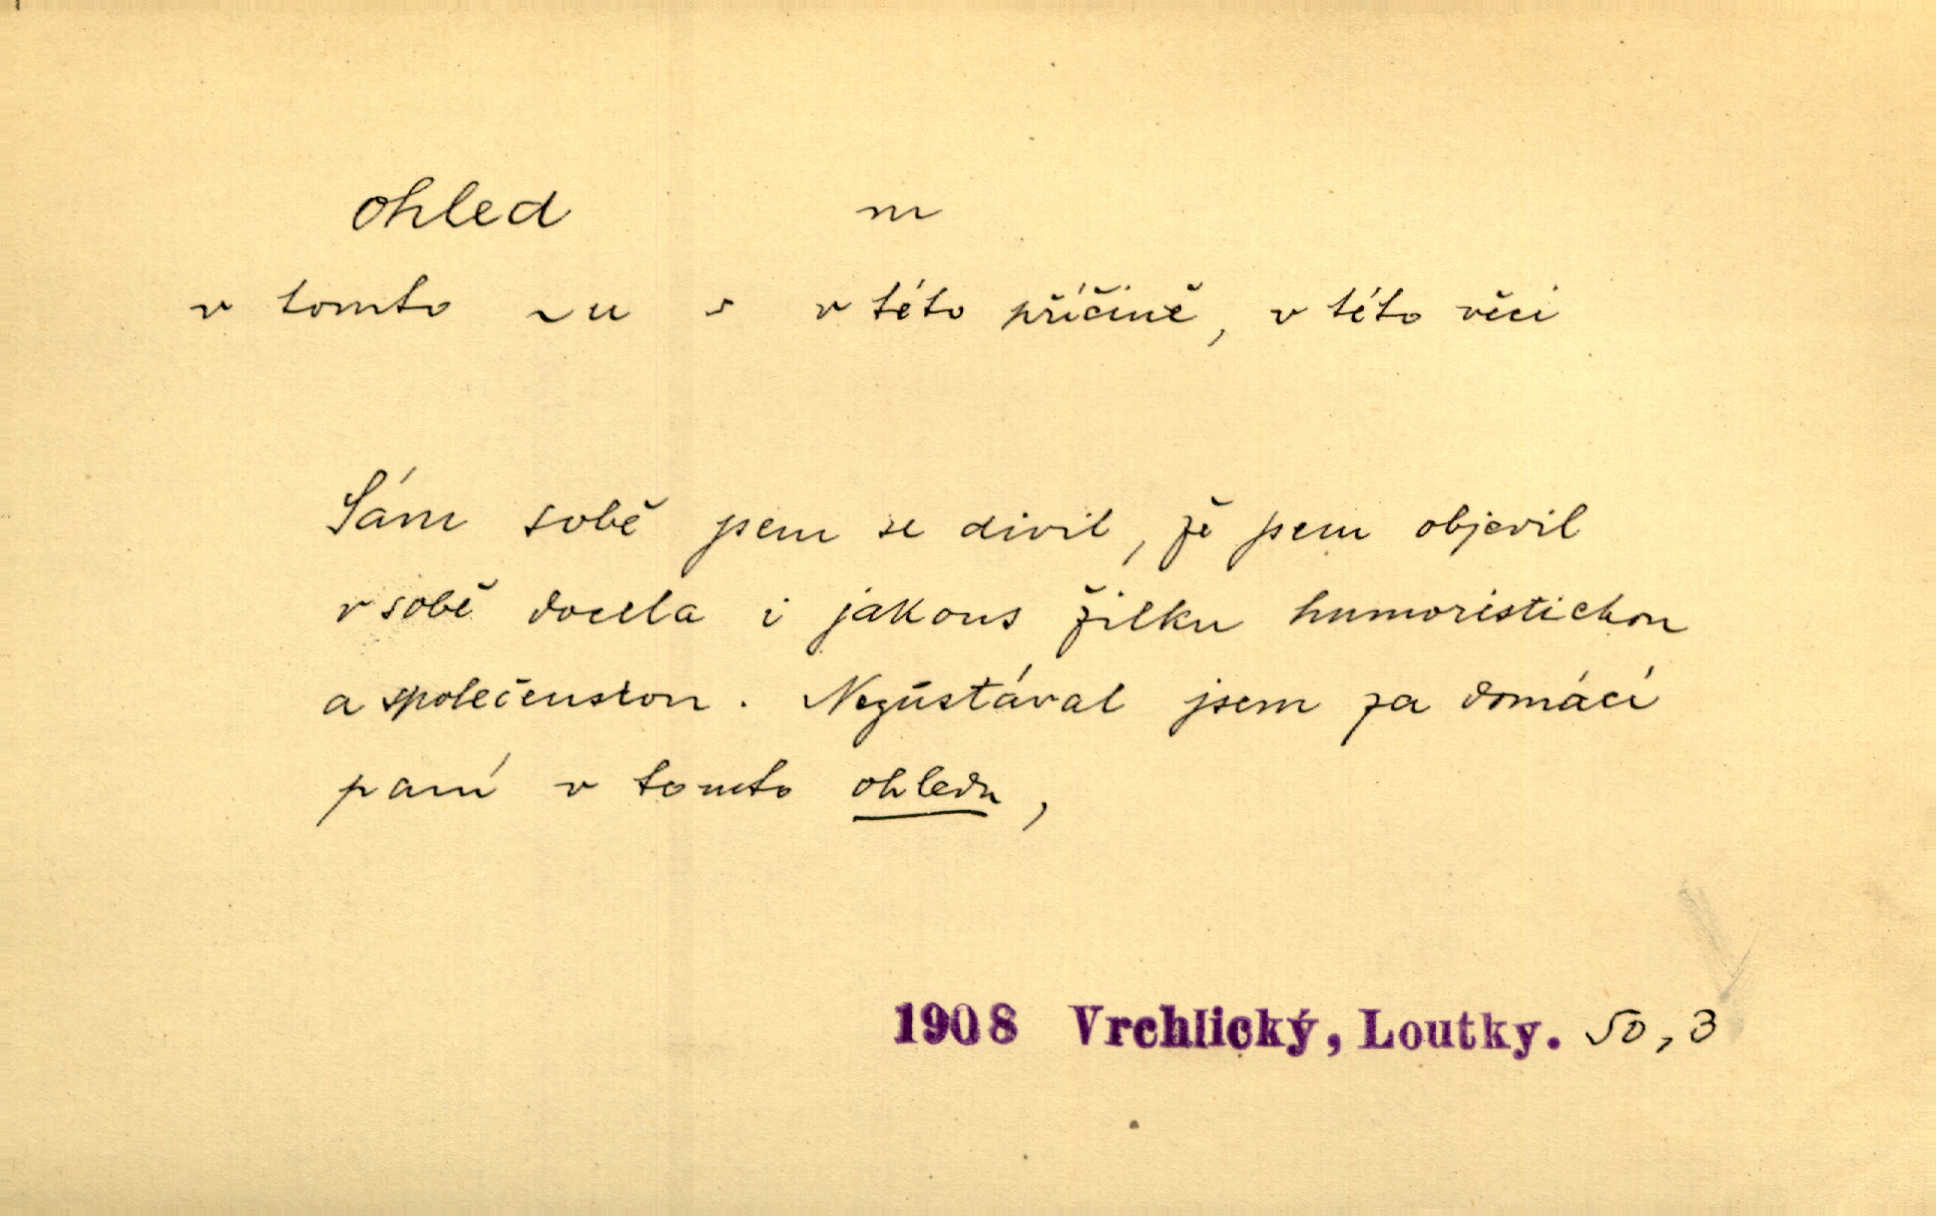 ohled m
v tomto ~u s v této příčině, v této věci
Sám sobě jsem se divil, že jsem objevil
v sobě docela i jakous žilku humoristickou
a společenskou. Nezůstával jsem za domácí
paní v tomto ohledu,
1908 Vrchlický, Loutky. 50,3